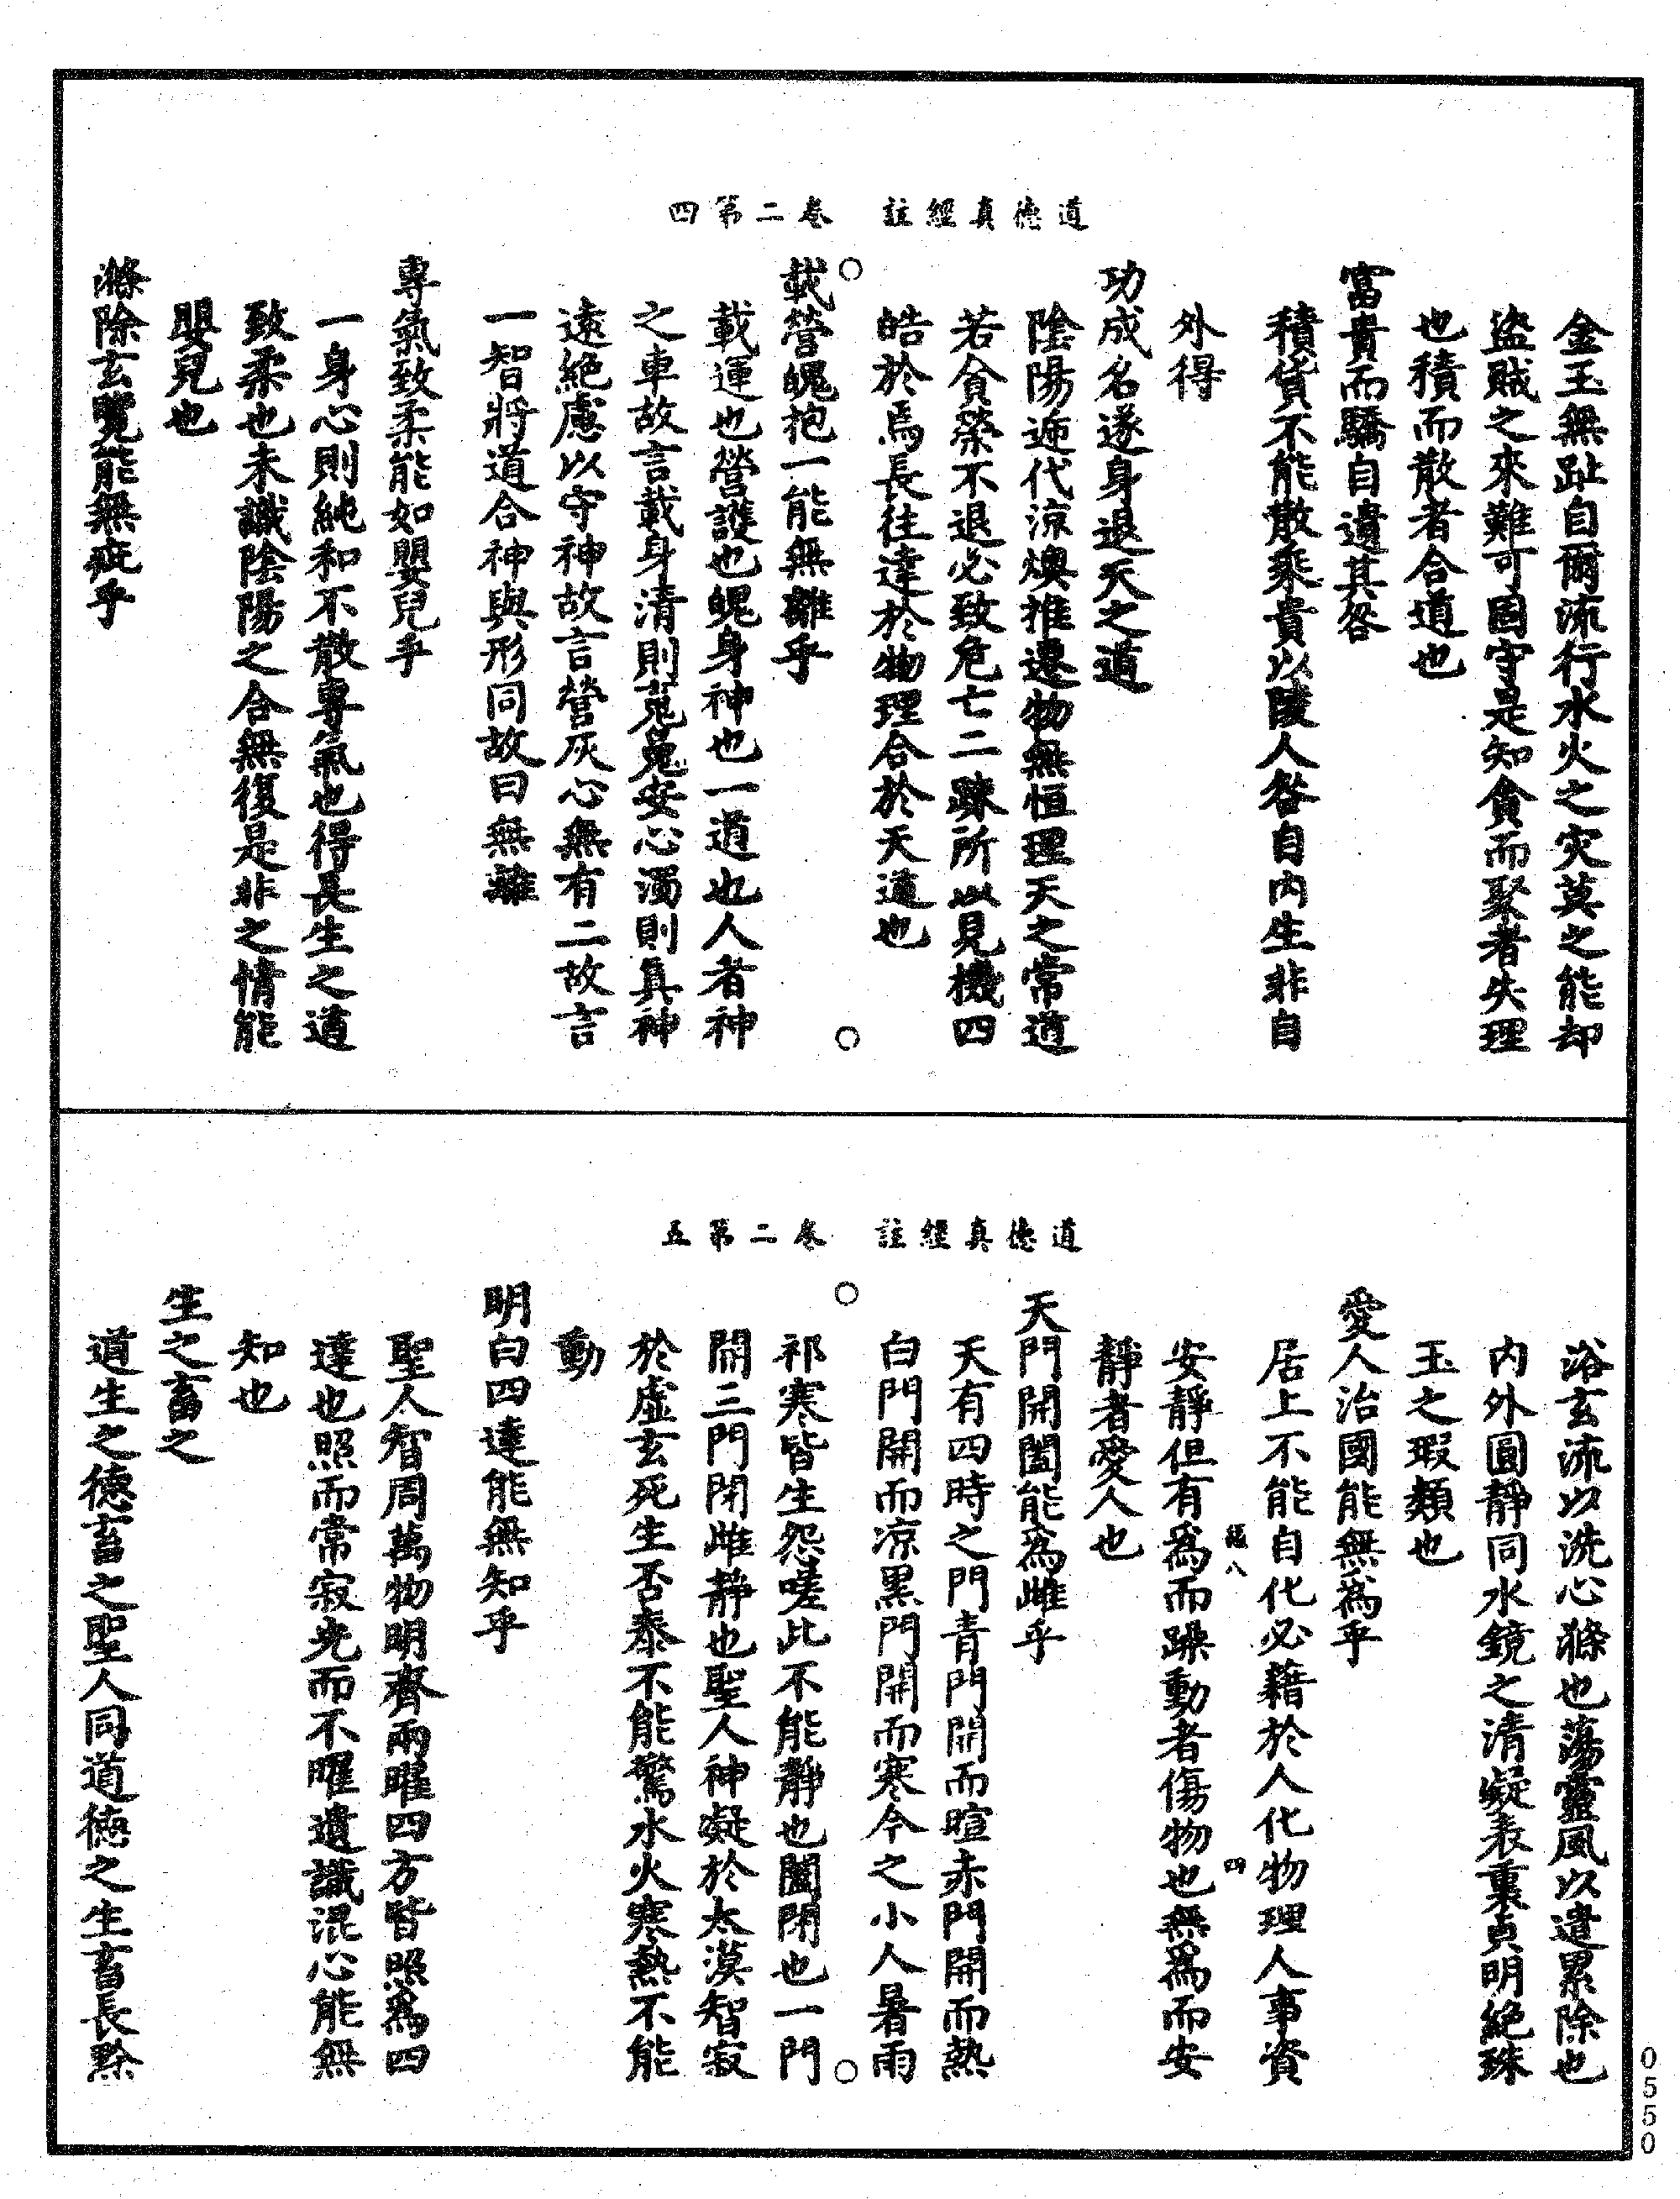 道德真經註　卷二第四
金玉無趾自爾流行水火之灾莫之能却
盜賊之來難可固守是知貪而聚者失理
也積而散者合道也
富貴而驕自遺其咎
積貨不能散乘貴以陵人咎自內生非自
外得
功成名遂身退天之道
陰陽遞代涼燠推遷物無恒理天之常道
若貪榮不退必致危亡二疎所以見機四
皓於焉長往達於物理合於天道也
載營魄抱一能無離乎
載運也營護也魄身神也一道也人者神
之車故言載身清則魂魄安心濁則真神
遠絕慮以守神故言營灰心無有二故言
一智將道合神與形同故曰無離
專氣致柔能如嬰兒乎
一身心則純和不散專氣也得長生之道
致柔也未識陰陽之合無復是非之情能
嬰兒也
滌除玄覽能無疵乎
道德真經註　卷二第五
浴玄流以洗心滌也蕩靈風以遣累除也
內外圓靜同水鏡之清凝表裏貞明絕珠
玉之瑕纇也
愛人治國能無為乎
居上不能自化必藉於人化物理人事資
八　四
安靜但有為而躁動者傷物也無為而安
靜者愛人也
天門開闔能為雌乎
天有四時之門青門開而暄赤門開而熱
白門開而涼黑門開而寒今之小人暑雨
祁寒皆生怨嗟此不能靜也闔閉也一門
開三門閉雌靜也聖人神凝於太漠智寂
於虛玄死生否泰不能驚水火寒熱不能
動
明白四達能無知乎
聖人智周萬物明齊兩曜四方皆照為四
達也照而常寂光而不曜遺識混心能無
知也
生之畜之
道生之德畜之聖人同道德之生畜長黔
0550